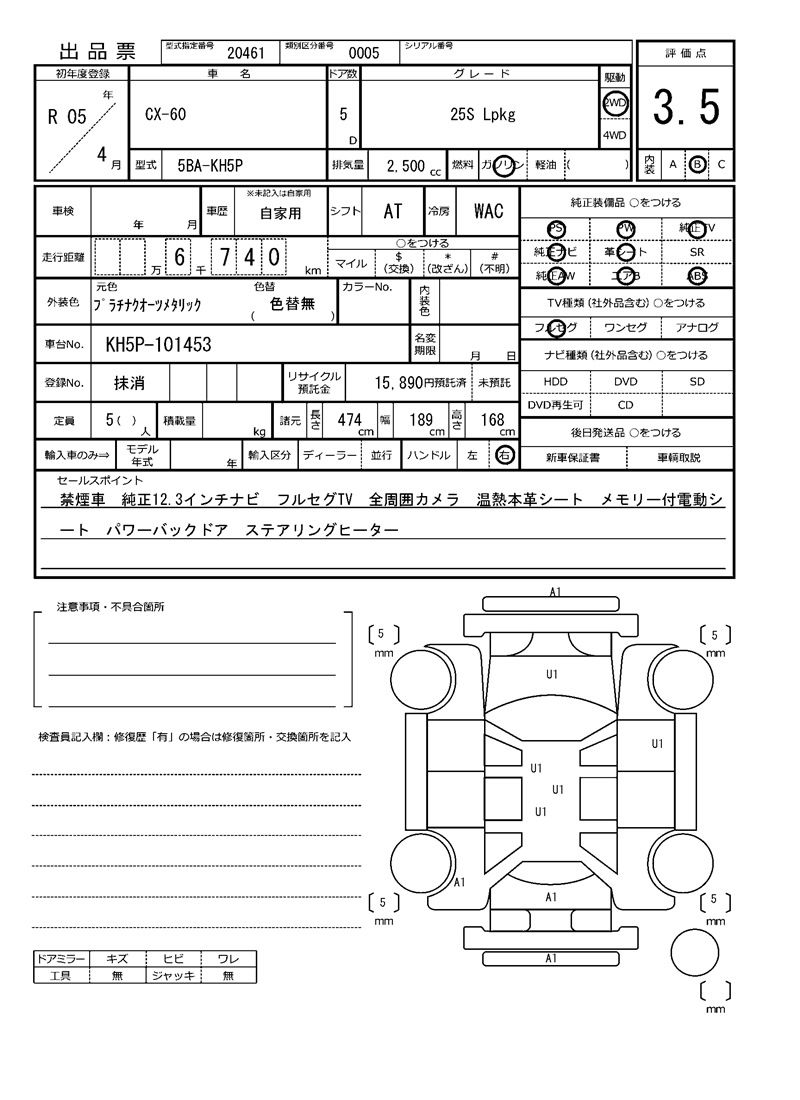 出品票 型式指定番号 20461 類別区分番号 0005 シリアル番号
初年度登録 車 名 ドア数 グレード 駆動 評価点
R 05 年 4 月 CX-60 5 D 25S Lpkg 2WD 4WD 3.5
型式 5BA-KH5P 排気量 2,500 cc 燃料 ガソリン 軽油 ( ) 内装 A B C
車検 年 月 車歴 ※未記入は自家用 自家用 シフト AT 冷房 WAC 純正装備品 ○をつける
PS PW 純正TV
走行距離 万 6 千 7 4 0 km ○をつける マイル $ (交換) * (改ざん) # (不明) 純正ナビ 革シート SR
純正AW エアB ABS
外装色 元色 プラチナクオーツメタリック 色替 ( 色替無 ) カラーNo. 内装色 TV種類 (社外品含む) ○をつける
フルセグ ワンセグ アナログ
車台No. KH5P-101453 名変期限 月 日 ナビ種類 (社外品含む) ○をつける
登録No. 抹消 リサイクル預託金 15,890円預託済 未預託 HDD DVD SD
DVD再生可 CD
定員 5 ( ) 人 積載量 kg 諸元 長さ 474 cm 幅 189 cm 高さ 168 cm 後日発送品 ○をつける
輸入車のみ⇒ モデル年式 年 輸入区分 ディーラー 並行 ハンドル 左 右 新車保証書 車輌取説
セールスポイント
禁煙車 純正12.3インチナビ フルセグTV 全周囲カメラ 温熱本革シート メモリー付電動シ
ート パワーバックドア ステアリングヒーター
注意事項・不具合箇所
A1
5 mm
5 mm
U1
検査員記入欄：修復歴「有」の場合は修復箇所・交換箇所を記入
U1
U1
U1
U1
A1
A1
5 mm
5 mm
A1
ドアミラー キズ ヒビ ワレ
工具 無 ジャッキ 無
mm